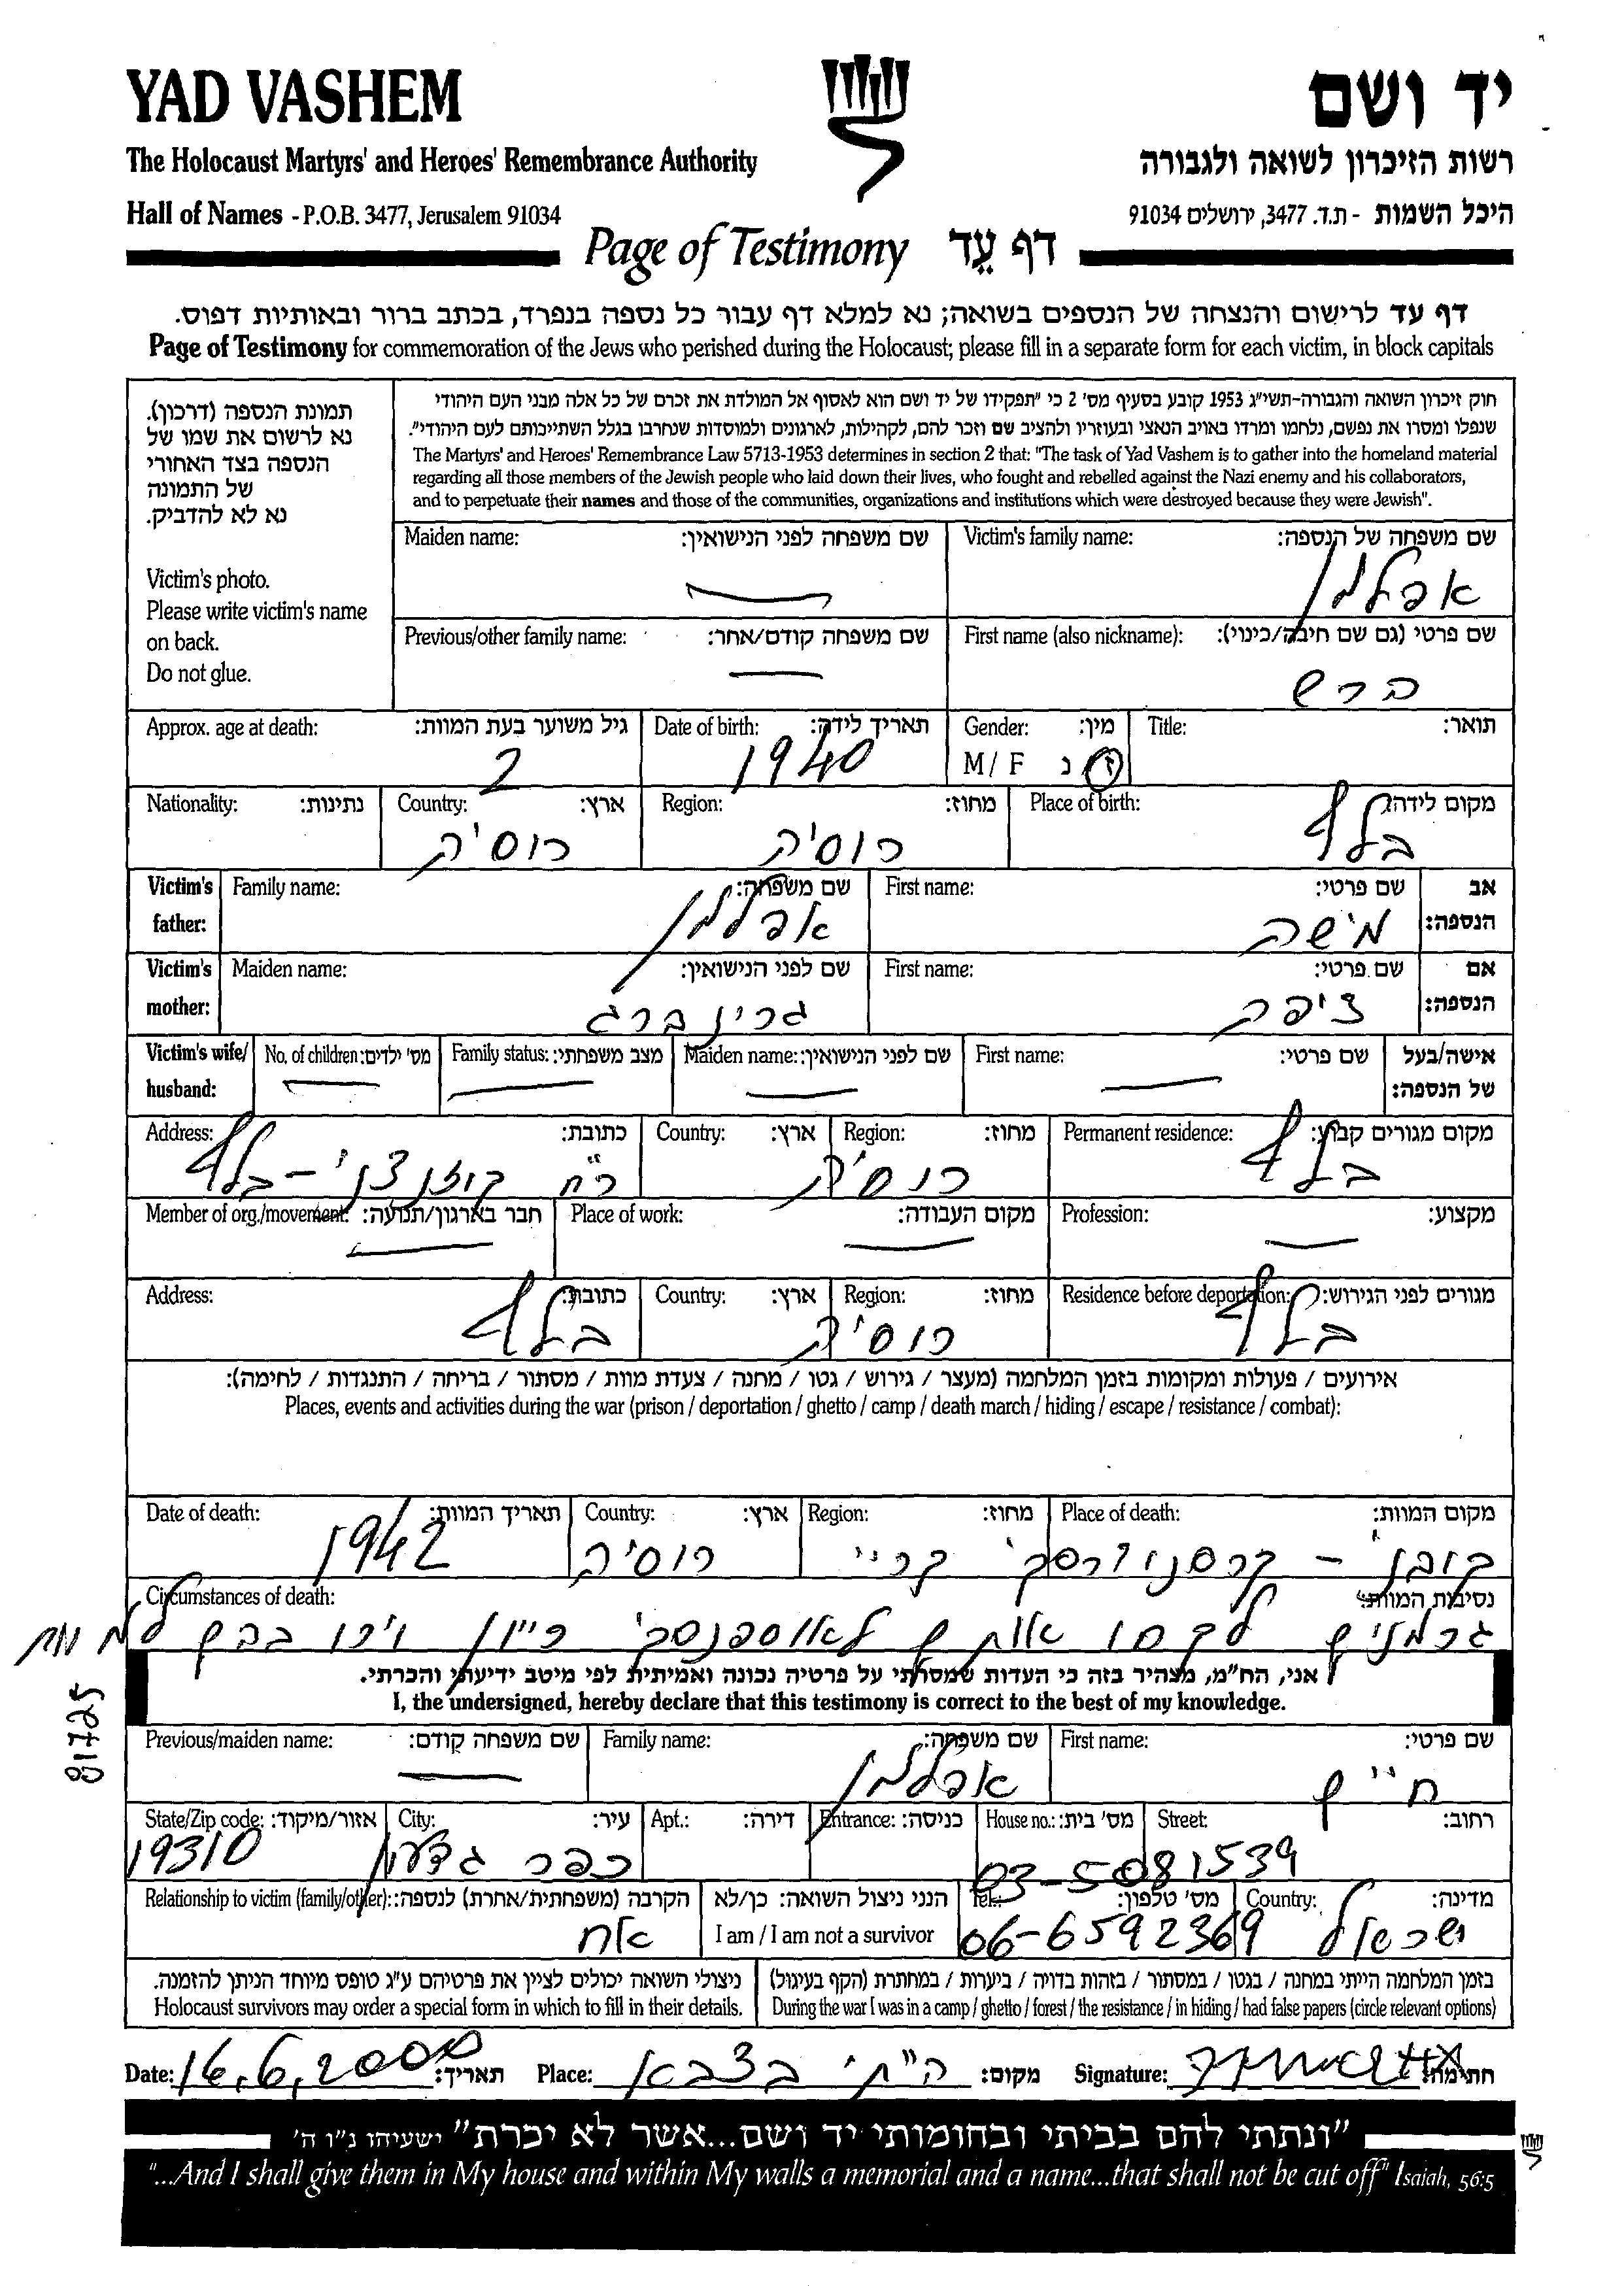 YAD VASHEM
יד ושם
The Holocaust Martyrs' and Heroes' Remembrance Authority
רשות הזיכרון לשואה ולגבורה
Hall of Names - P.O.B. 3477, Jerusalem 91034
היכל השמות - ת.ד. 3477, ירושלים 91034
Page of Testimony דף עֵד
דף עד לרישום והנצחה של הנספים בשואה; נא למלא דף עבור כל נספה בנפרד, בכתב ברור ובאותיות דפוס.
Page of Testimony for commemoration of the Jews who perished during the Holocaust; please fill in a separate form for each victim, in block capitals
תמונת הנספה (דרכון).
נא לרשום את שמו של
הנספה בצד האחורי
של התמונה
נא לא להדביק.
Victim's photo.
Please write victim's name
on back.
Do not glue.
חוק זיכרון השואה והגבורה-תשי"ג 1953 קובע בסעיף מס' 2 כי "תפקידו של יד ושם הוא לאסוף אל המולדת את זכרם של כל אלה מבני העם היהודי
שנפלו ומסרו את נפשם, נלחמו ומרדו באויב הנאצי ובעוזריו ולהציב שם וזכר להם, לקהילות, לארגונים ולמוסדות שנחרבו בגלל השתייכותם לעם היהודי".
The Martyrs' and Heroes' Remembrance Law 5713-1953 determines in section 2 that: "The task of Yad Vashem is to gather into the homeland material
regarding all those members of the Jewish people who laid down their lives, who fought and rebelled against the Nazi enemy and his collaborators,
and to perpetuate their names and those of the communities, organizations and institutions which were destroyed because they were Jewish".
Victim's family name: שם משפחה של הנספה:
אפלמן
Maiden name: שם משפחה לפני הנישואין:
First name (also nickname): שם פרטי (גם שם חיבה/כינוי):
ברש
Previous/other family name: שם משפחה קודם/אחר:
Title: תואר:
Gender: מין:
M / F ז / נ
Date of birth: תאריך לידה:
1940
Approx. age at death: גיל משוער בעת המוות:
2
Place of birth: מקום לידה:
בלץ
Region: מחוז:
רוסיה
Country: ארץ:
רוסיה
Nationality: נתינות:
Victim's father: אב הנספה:
First name: שם פרטי:
מישה
Family name: שם משפחה:
אפלמן
Victim's mother: אם הנספה:
First name: שם פרטי:
ציפה
Maiden name: שם לפני הנישואין:
גרינברג
Victim's wife/ husband: אישה/בעל של הנספה:
First name: שם פרטי:
Maiden name: שם לפני הנישואין:
Family status: מצב משפחתי:
No. of children: מס' ילדים:
Permanent residence: מקום מגורים קבוע:
בלץ
Region: מחוז: Country: ארץ:
רוסיה
Address: כתובת:
רח' - בלץ
Profession: מקצוע:
Place of work: מקום העבודה:
Member of org./movement: חבר בארגון/תנועה:
Residence before deportation: מגורים לפני הגירוש:
בלץ
Region: מחוז: Country: ארץ:
רוסיה
Address: כתובת:
בלץ
אירועים / פעולות ומקומות בזמן המלחמה (מעצר / גירוש / גטו / מחנה / צעדת מוות / מסתור / בריחה / התנגדות / לחימה):
Places, events and activities during the war (prison / deportation / ghetto / camp / death march / hiding / escape / resistance / combat):
Place of death: מקום המוות: Region: מחוז:
קובן - קרסנודרסקי קריי
Country: ארץ:
רוסיה
Date of death: תאריך המוות:
1942
Circumstances of death: נסיבות המוות:
גרמנים לקחו אותם לאוספנסקי ריון וירו בהם
81725
אני, הח"מ, מצהיר בזה כי העדות שמסרתי על פרטיה נכונה ואמיתית לפי מיטב ידיעתי והכרתי.
I, the undersigned, hereby declare that this testimony is correct to the best of my knowledge.
First name: שם פרטי:
חיים
Family name: שם משפחה:
אפלמן
Previous/maiden name: שם משפחה קודם:
Street: רחוב: House no.: מס' בית: Entrance: כניסה: Apt.: דירה:
03-5081539
City: עיר:
כפר גדעון
State/Zip code: אזור/מיקוד:
19310
Country: מדינה:
ישראל
Tel.: מס' טלפון:
06-6592369
הנני ניצול השואה: כן/לא
I am / I am not a survivor
Relationship to victim (family/other): הקרבה (משפחתית/אחרת) לנספה:
אח
בזמן המלחמה הייתי במחנה / בגטו / במסתור / בזהות בדויה / ביערות / במחתרת (הקף בעיגול)
During the war I was in a camp / ghetto / forest / the resistance / in hiding / had false papers (circle relevant options)
ניצולי השואה יכולים לציין את פרטיהם ע"ג טופס מיוחד הניתן להזמנה.
Holocaust survivors may order a special form in which to fill in their details.
Date: 16.6.2000 תאריך: Place: מקום: Signature: חתימה:
"ונתתי להם בביתי ובחומותי יד ושם...אשר לא יכרת" ישעיהו נ"ו ה'
"...And I shall give them in My house and within My walls a memorial and a name...that shall not be cut off" Isaiah, 56:5